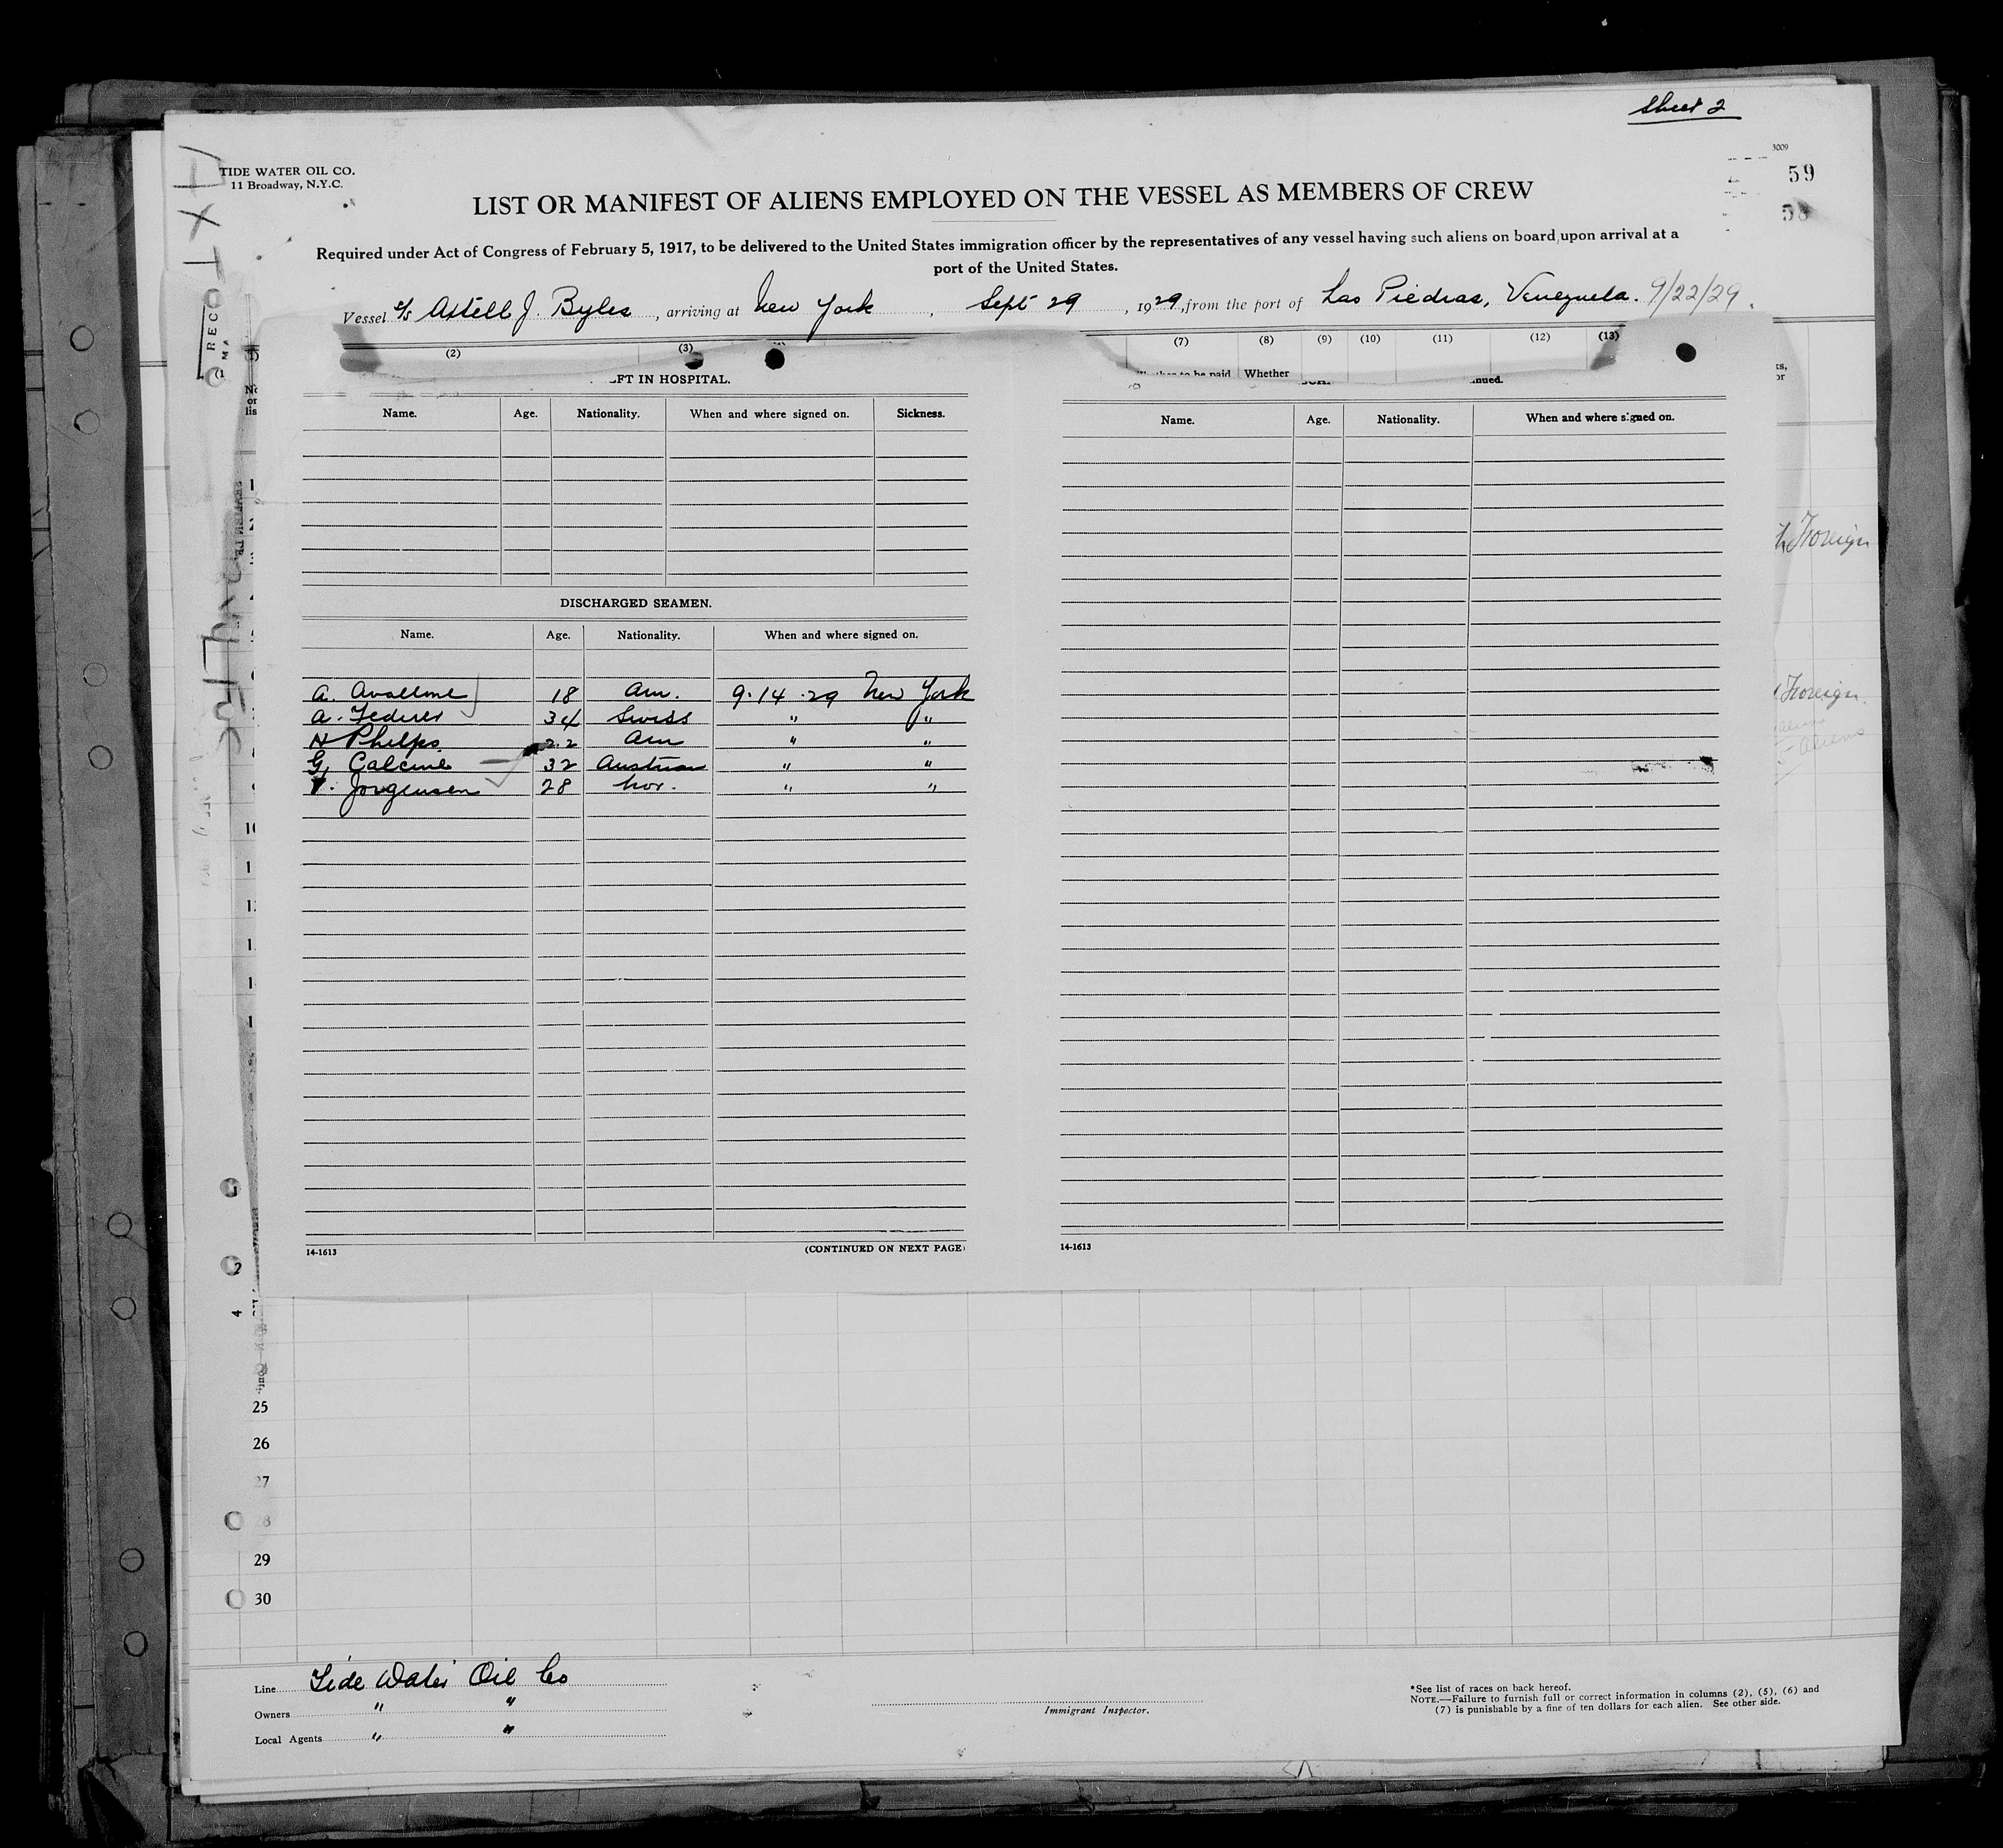 Sheet 2
3009
TIDE WATER OIL CO.
11 Broadway, N.Y.C.
59
58
LIST OR MANIFEST OF ALIENS EMPLOYED ON THE VESSEL AS MEMBERS OF CREW
Required under Act of Congress of February 5, 1917, to be delivered to the United States immigration officer by the representatives of any vessel having such aliens on board upon arrival at a
port of the United States.
Vessel S/S Axtell J. Byles, arriving at New York, Sept 29, 1929, from the port of Las Piedras, Venezuela. 9/22/29.
(2) (3) (7) (8) (9) (10) (11) (12) (13)
to be paid Whether
FT IN HOSPITAL.
nued.
Name. Age. Nationality. When and where signed on. Sickness.
Name. Age. Nationality. When and where signed on.
Foreign
DISCHARGED SEAMEN.
Name. Age. Nationality. When and where signed on.
A. Avallone 18 Am. 9.14.29 New York
A. Federer 34 Swiss " "
H Phelps 22 Am " "
G. Calcine 32 Austrian " "
Jorgensen 28 Nor. " "
Foreign
Aliens
14-1613 (CONTINUED ON NEXT PAGE)
14-1613
25
26
27
28
29
30
Line Tide Water Oil Co
Owners " "
Local Agents " "
Immigrant Inspector.
*See list of races on back hereof.
NOTE.—Failure to furnish full or correct information in columns (2), (5), (6) and
(7) is punishable by a fine of ten dollars for each alien. See other side.